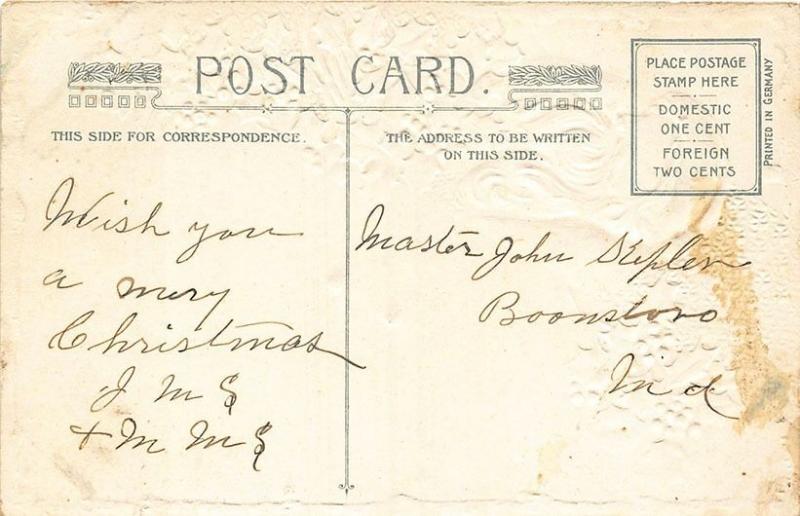 POST CARD.
THIS SIDE FOR CORRESPONDENCE.
THE ADDRESS TO BE WRITTEN
ON THIS SIDE.
PLACE POSTAGE
STAMP HERE
DOMESTIC
ONE CENT
FOREIGN
TWO CENTS
PRINTED IN GERMANY
Wish you
a mery
Christmas
J M S
+ M M S
Master John
Boonsboro
Md